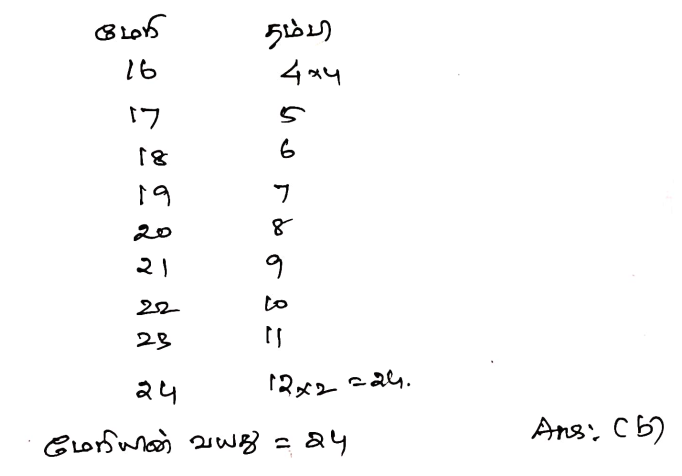 மேரி தம்பி
16 4×4
17 5
18 6
19 7
20 8
21 9
22 10
23 11
24 12×2 = 24.
மேரியின் வயது = 24 Ans: (b)